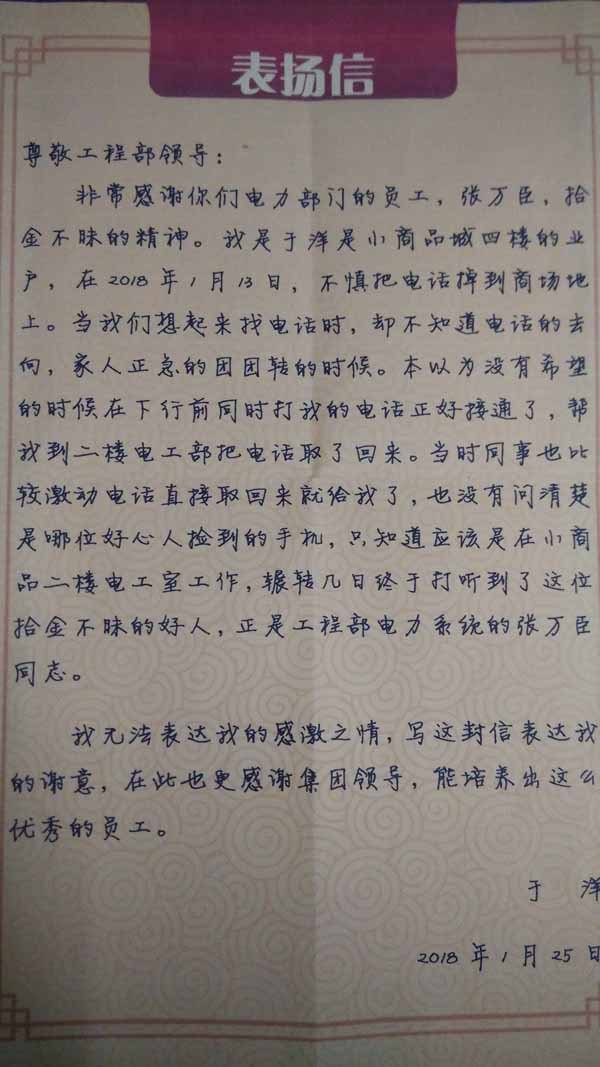 表扬信
尊敬工程部领导：
非常感谢你们电力部门的员工，张万臣，拾
金不昧的精神。我是于洋是小商品城四楼的业
户，在2018年1月13日，不慎把电话掉到商场地
上。当我们想起来找电话时，却不知道电话的去
向，家人正急的团团转的时候。本以为没有希望
的时候在下行前同时打我的电话正好接通了，帮
我到二楼电工部把电话取了回来。当时同事也比
较激动电话直接取回来就给我了，也没有问清楚
是哪位好心人捡到的手机，只知道应该是在小商
品二楼电工室工作，辗转几日终于打听到了这位
拾金不昧的好人，正是工程部电力系统的张万臣
同志。
我无法表达我的感激之情，写这封信表达我
的谢意，在此也更感谢集团领导，能培养出这么
优秀的员工。
于 洋
2018年1月25日